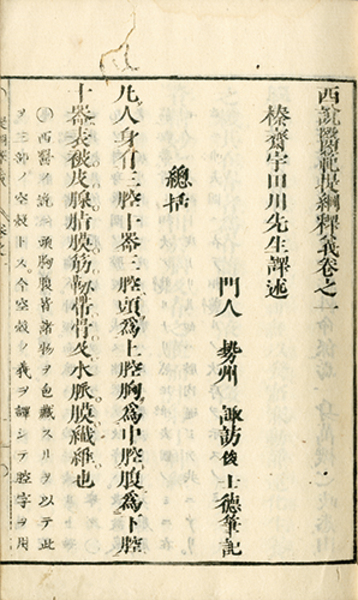 西說醫範提綱釋義卷之一
榛齋宇田川先生譯述
門人 勢州 諏訪俊士德筆記
總括
凡人身有三腔十器三腔頭爲上腔胸爲中腔腹爲下腔
十器表被皮腺脂膜筋靱帶骨及水脈膜纖維也
西醫ノ說ニ頭胸腹皆諸物ヲ包藏スルヲ以テ此
ヲ三ツノ空殼トス今空殼ノ義ヲ譯シテ腔字ヲ用